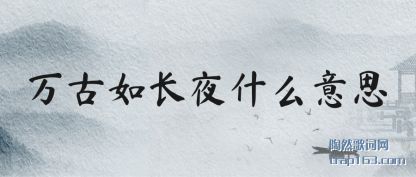 万古如长夜什么意思
陶然歌词网
trap163.com